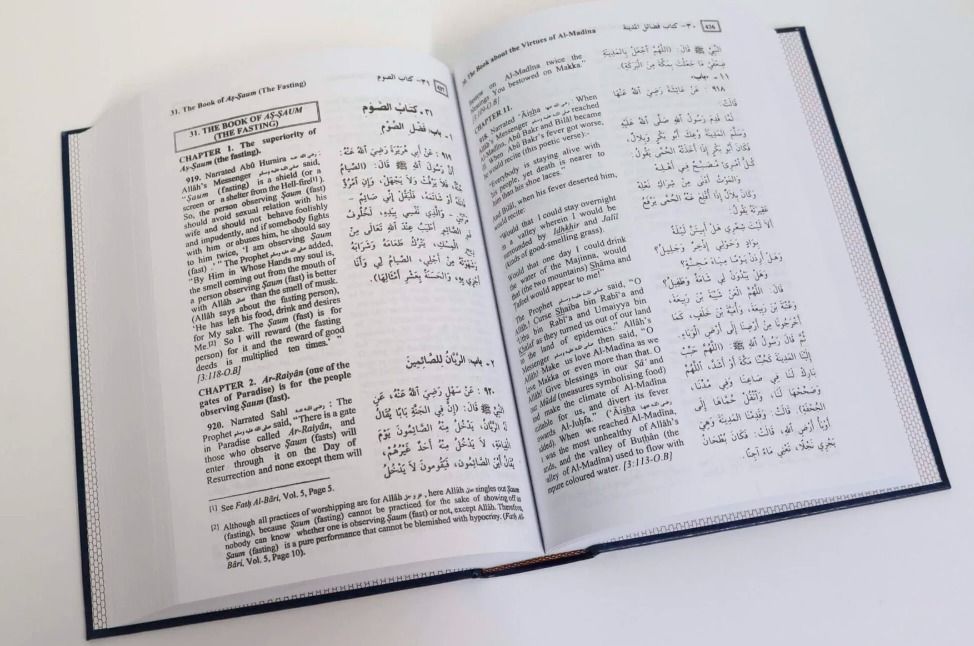 31. The Book of Aṣ-Ṣaum (The Fasting)
٣١- كتاب الصوم
427
31. THE BOOK OF AṢ-ṢAUM
(THE FASTING)
CHAPTER 1. The superiority of
Aṣ-Ṣaum (the fasting).
919. Narrated Abū Huraira رضي الله عنه :
Allāh's Messenger صلى الله عليه وسلم said,
"Ṣaum (fasting) is a shield (or a
screen or a shelter from the Hell-fire[1]).
So, the person observing Ṣaum (fast)
should avoid sexual relation with his
wife and should not behave foolishly
and impudently, and if somebody fights
with him or abuses him, he should say
to him twice, 'I am observing Ṣaum
(fast) . " The Prophet صلى الله عليه وسلم added,
"By Him in Whose Hands my soul is,
the smell coming out from the mouth of
a person observing Ṣaum (fast) is better
with Allāh than the smell of musk.
(Allāh says about the fasting person),
'He has left his food, drink and desires
for My sake. The Ṣaum (fast) is for
Me.[2] So I will reward (the fasting
person) for it and the reward of good
deeds is multiplied ten times.' "
[3:118-O.B]
CHAPTER 2. Ar-Raiyān (one of the
gates of Paradise) is for the people
observing Ṣaum (fast).
920. Narrated Sahl رضي الله عنه : The
Prophet صلى الله عليه وسلم said, "There is a gate
in Paradise called Ar-Raiyān, and
those who observe Ṣaum (fasts) will
enter through it on the Day of
Resurrection and none except them will
٣١- كتابُ الصَّوْم
١- باب فَضْلِ الصَّوْمِ
٩١٩ : عَنْ أَبِي هُرَيْرَةَ رَضِيَ اللهُ عَنْهُ:
أَنَّ رَسُولَ اللهِ ﷺ قَالَ: (الصِّيَامُ
جُنَّةٌ، فَلَا يَرْفُثْ وَلَا يَجْهَلْ، وَإِنِ امْرُؤٌ
قَاتَلَهُ أَوْ شَاتَمَهُ، فَلْيَقُلْ إِنِّي صَائِمٌ -
مَرَّتَيْنِ - وَالَّذِي نَفْسِي بِيَدِهِ، لَخُلُوفُ
فَمِ الصَّائِمِ أَطْيَبُ عِنْدَ اللهِ تَعَالَى مِنْ
رِيحِ الْمِسْكِ، يَتْرُكُ طَعَامَهُ وَشَرَابَهُ
وَشَهْوَتَهُ مِنْ أَجْلِي، الصِّيَامُ لِي وَأَنَا
أَجْزِي بِهِ، وَالحَسَنَةُ بِعَشْرِ أَمْثَالِهَا).
٢- باب: الرَّيَّانُ لِلصَّائِمِينَ
٩٢٠ : عَنْ سَهْلٍ رَضِيَ اللهُ عَنْهُ، عَنِ
النَّبِيِّ ﷺ قَالَ: (إِنَّ فِي الجَنَّةِ بَابًا يُقَالُ
لَهُ الرَّيَّانُ، يَدْخُلُ مِنْهُ الصَّائِمُونَ يَوْمَ
القِيَامَةِ، لَا يَدْخُلُ مِنْهُ أَحَدٌ غَيْرُهُمْ،
يُقَالُ أَيْنَ الصَّائِمُونَ، فَيَقُومُونَ لَا يَدْخُلُ
[1] See Fatḥ Al-Bāri, Vol. 5, Page 5.
[2] Although all practices of worshipping are for Allāh عز وجل, here Allāh singles out Ṣaum
(fasting), because Ṣaum (fasting) cannot be practiced for the sake of showing off as
nobody can know whether one is observing Ṣaum (fast) or not, except Allāh. Therefore,
Ṣaum (fasting) is a pure performance that cannot be blemished with hypocrisy. (Fatḥ Al-
Bāri, Vol. 5, Page 10).
The Book about the Virtues of Al-Madīna
٣٠- كتاب فضائل المدينة
426
on Al-Madīna twice the
blessings You bestowed on Makka."
CHAPTER 11.
Narrated 'Āisha رضي الله عنها : When
Allāh's Messenger صلى الله عليه وسلم reached
Al-Madīna, Abū Bakr and Bilāl became
ill. When Abū Bakr's fever got worse,
he would recite (this poetic verse):-
"Everybody is staying alive with
his people, yet death is nearer to
him than his shoe laces."
And Bilāl, when his fever deserted him,
would recite:
"Would that I could stay overnight
in a valley wherein I would be
surrounded by Idhkhir and Jalīl
(kinds of good-smelling grass).
Would that one day I could drink
the water of the Majinna, would
that (the two mountains) Shāma and
Ṭafīl would appear to me!"
The Prophet صلى الله عليه وسلم said, "O
Allāh! Curse Shaiba bin Rabī'a and
'Utba bin Rabī'a and Umaiyya bin
Khalaf as they turned us out of our land
to the land of epidemics." Allāh's
Messenger صلى الله عليه وسلم then said, "O
Allāh! Make us love Al-Madīna as we
love Makka or even more than that. O
Allāh! Give blessings in our Ṣā' and
our Mudd (measures symbolising food)
and make the climate of Al-Madīna
suitable for us, and divert its fever
towards Al-Juḥfa." ('Āisha رضي الله عنها
added): When we reached Al-Madīna,
it was the most unhealthy of Allāh's
lands, and the valley of Buṭhān (the
valley of Al-Madīna) used to flow with
impure coloured water. [3:113-O.B]
النَّبِيِّ ﷺ قَالَ: (اللَّهُمَّ اجْعَلْ بِالمَدِينَةِ
ضِعْفَيْ مَا جَعَلْتَ بِمَكَّةَ مِنَ البَرَكَةِ)
١١ - باب
٩١٨ : عَنْ عَائِشَةَ رَضِيَ اللهُ عَنْهَا
قَالَتْ:
لَمَّا قَدِمَ رَسُولُ اللهِ صَلَّى اللهُ عَلَيْهِ
وَسَلَّمَ المَدِينَةَ وُعِكَ أَبُو بَكْرٍ وَبِلَالٌ،
فَكَانَ أَبُو بَكْرٍ إِذَا أَخَذَتْهُ الحُمَّى يَقُولُ:
كُلُّ امْرِئٍ مُصَبَّحٌ فِي أَهْلِهِ
وَالمَوْتُ أَدْنَى مِنْ شِرَاكِ نَعْلِهِ
وَكَانَ بِلَالٌ إِذَا أُقْلِعَ عَنْهُ الحُمَّى يَرْفَعُ
عَقِيرَتَهُ يَقُولُ:
أَلَا لَيْتَ شِعْرِي هَلْ أَبِيتَنَّ لَيْلَةً
بِوَادٍ وَحَوْلِي إِذْخِرٌ وَجَلِيلُ؟
وَهَلْ أَرِدَنْ يَوْمًا مِيَاهَ مَجَنَّةٍ؟
وَهَلْ يَبْدُوَنْ لِي شَامَةٌ وَطَفِيلُ؟
قَالَ: اللَّهُمَّ الْعَنْ شَيْبَةَ بْنَ رَبِيعَةَ،
وَعُتْبَةَ بْنَ رَبِيعَةَ، وَأُمَيَّةَ بْنَ خَلَفٍ، كَمَا
أَخْرَجُونَا مِنْ أَرْضِنَا إِلَى أَرْضِ الوَبَاءِ.
ثُمَّ قَالَ رَسُولُ اللهِ ﷺ: (اللَّهُمَّ حَبِّبْ
إِلَيْنَا المَدِينَةَ كَحُبِّنَا مَكَّةَ أَوْ أَشَدَّ، اللَّهُمَّ
بَارِكْ لَنَا فِي صَاعِنَا وَفِي مُدِّنَا،
وَصَحِّحْهَا لَنَا، وَانْقُلْ حُمَّاهَا إِلَى
الجُحْفَةِ). قَالَتْ: وَقَدِمْنَا المَدِينَةَ وَهِيَ
أَوْبَأُ أَرْضِ اللهِ، قَالَتْ: فَكَانَ بُطْحَانُ
يَجْرِي نَجْلًا، تَعْنِي مَاءً آجِنًا.